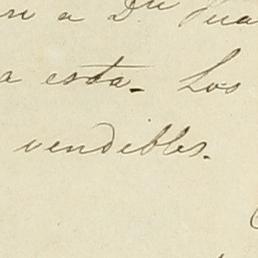 a Dn Jua
a esta. Los
vendibles.